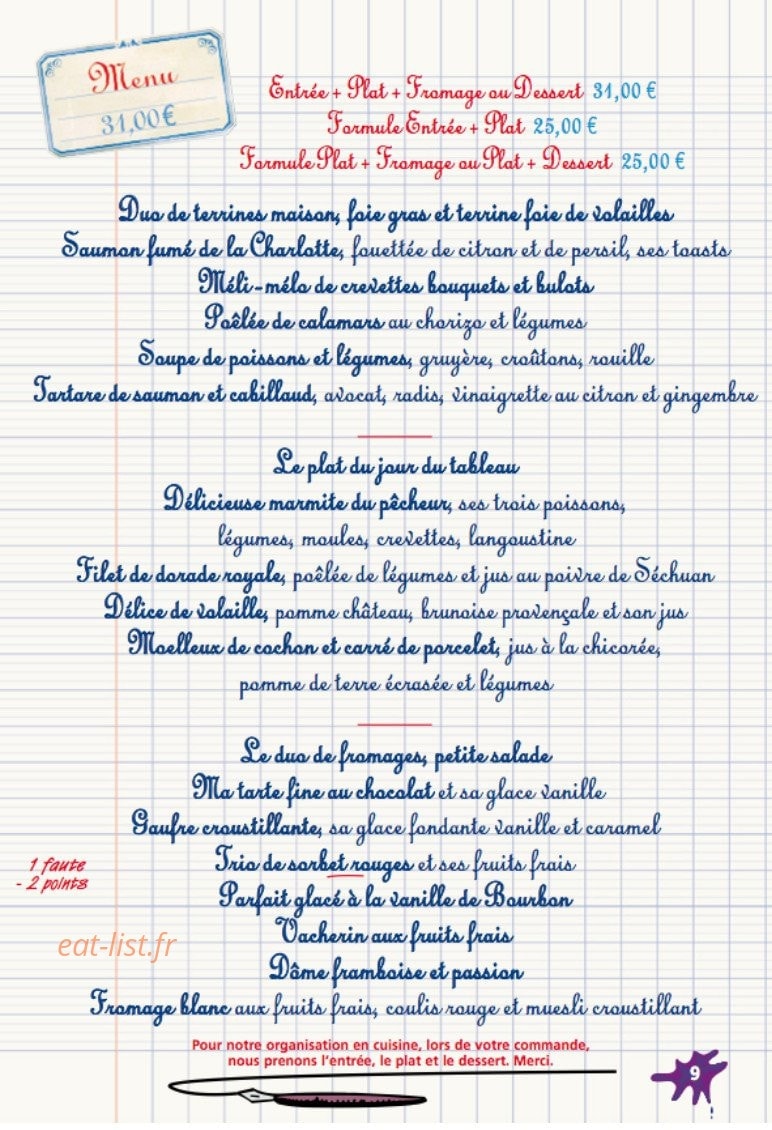 Menu
31,00 €
Entrée + Plat + Fromage ou Dessert 31,00 €
Formule Entrée + Plat 25,00 €
Formule Plat + Fromage ou Plat + Dessert 25,00 €
Duo de terrines maison, foie gras et terrine foie de volailles
Saumon fumé de la Charlotte, fouettée de citron et de persil, ses toasts
Méli-mélo de crevettes bouquets et bulots
Poêlée de calamars au chorizo et légumes
Soupe de poissons et légumes, gruyère, croûtons, rouille
Tartare de saumon et cabillaud, avocat, radis, vinaigrette au citron et gingembre
Le plat du jour du tableau
Délicieuse marmite du pêcheur, ses trois poissons,
légumes, moules, crevettes, langoustine
Filet de dorade royale, poêlée de légumes et jus au poivre de Séchuan
Délice de volaille, pomme château, brunoise provençale et son jus
Moelleux de cochon et carré de porcelet, jus à la chicorée,
pomme de terre écrasée et légumes
Le duo de fromages, petite salade
Ma tarte fine au chocolat et sa glace vanille
Gaufre croustillante, sa glace fondante vanille et caramel
1 faute
- 2 points
Trio de sorbet rouges et ses fruits frais
Parfait glacé à la vanille de Bourbon
Vacherin aux fruits frais
eat-list.fr
Dôme framboise et passion
Fromage blanc aux fruits frais, coulis rouge et muesli croustillant
Pour notre organisation en cuisine, lors de votre commande,
nous prenons l'entrée, le plat et le dessert. Merci.
9